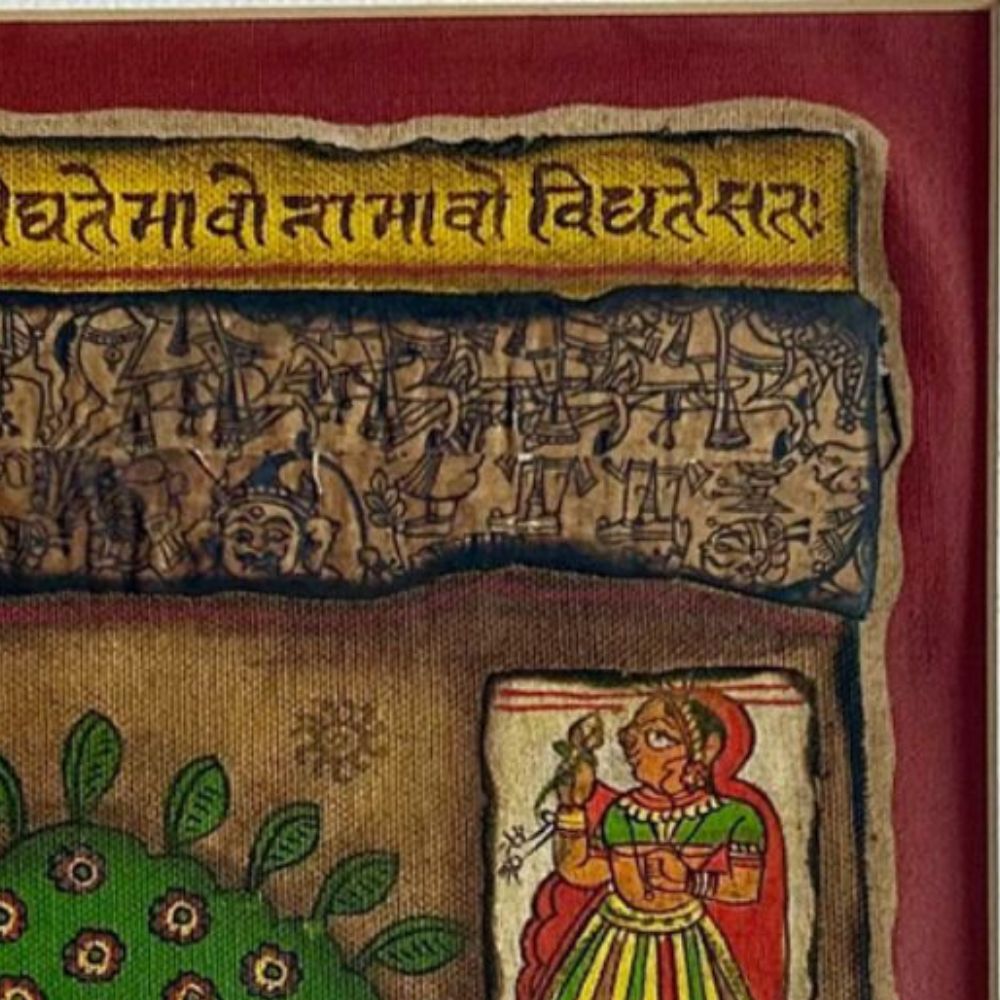 द्यते भावो नाभावो विद्यते सतः